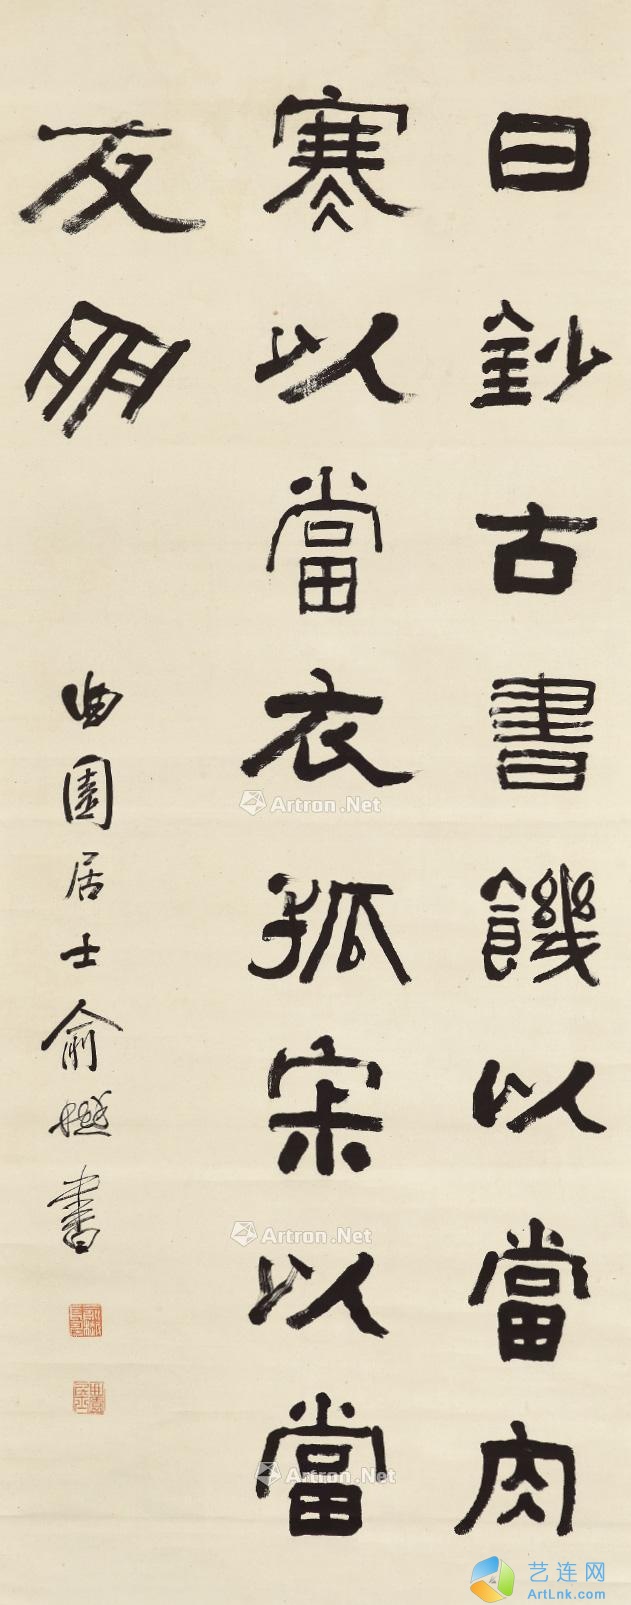 日鈔古書饑以當肉
寒以當衣孤宋以當
友朋
曲園居士俞樾書
Artron.Net
Artron.Net
Artron.Net
艺连网
ArtLnk.com